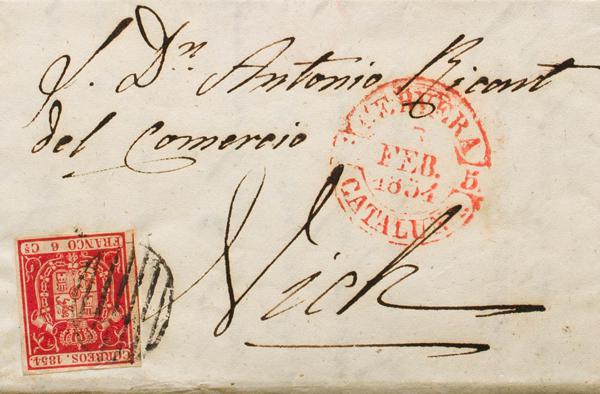 S. Dn Antonio Ricart
del Comercio
Vich
FEB.
1854
CATALUÑ
FRANCO 6 Cs.
CORREOS. 1854.